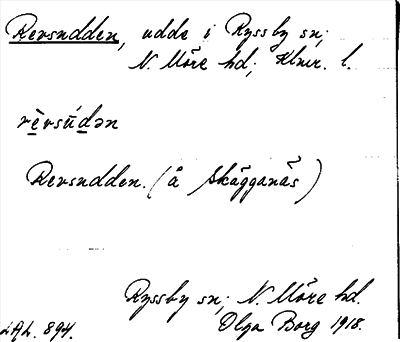 Revsudden, udde i Ryssby sn;
N. Möre hd; Klmr. l.
rèvsúdən
Revsudden. (å Skäggenäs)
Ryssby sn; N. Möre hd.
LAL. 894. Olga Borg 1918.